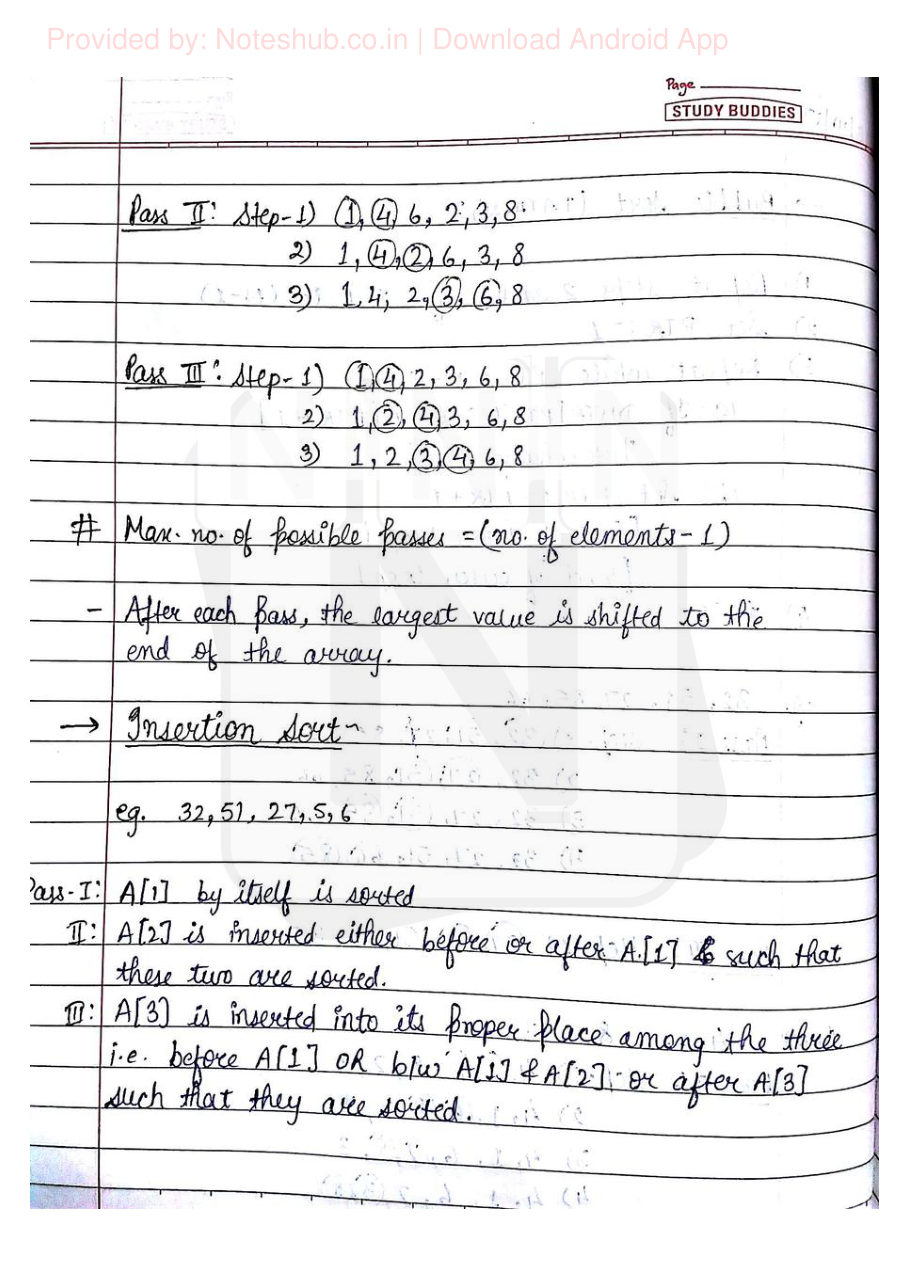 Provided by: Noteshub.co.in | Download Android App
Page
STUDY BUDDIES
Pass II: Step-1) 1, 4, 6, 2, 3, 8
2) 1, 4, 2, 6, 3, 8
3) 1, 4, 2, 3, 6, 8
Pass III: Step-1) 1, 4, 2, 3, 6, 8
2) 1, 2, 4, 3, 6, 8
3) 1, 2, 3, 4, 6, 8
# Max. no. of possible passes = (no. of elements - 1)
- After each pass, the largest value is shifted to the
end of the array.
→ Insertion Sort-
eg. 32, 51, 27, 5, 6
Pass-I: A[1] by itself is sorted
II: A[2] is inserted either before or after A[1] such that
these two are sorted.
III: A[3] is inserted into its proper place among the three
i.e. before A[1] OR b/w A[1] & A[2] or after A[3]
such that they are sorted.